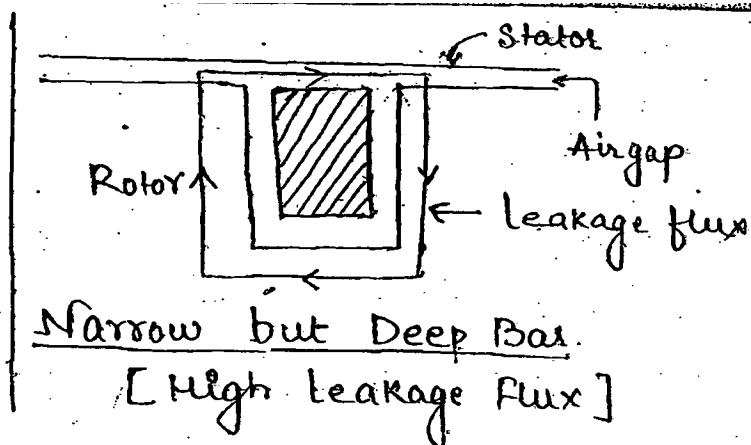 Stator
Airgap
Rotor
Leakage flux
Narrow but Deep Bar.
[High Leakage Flux]